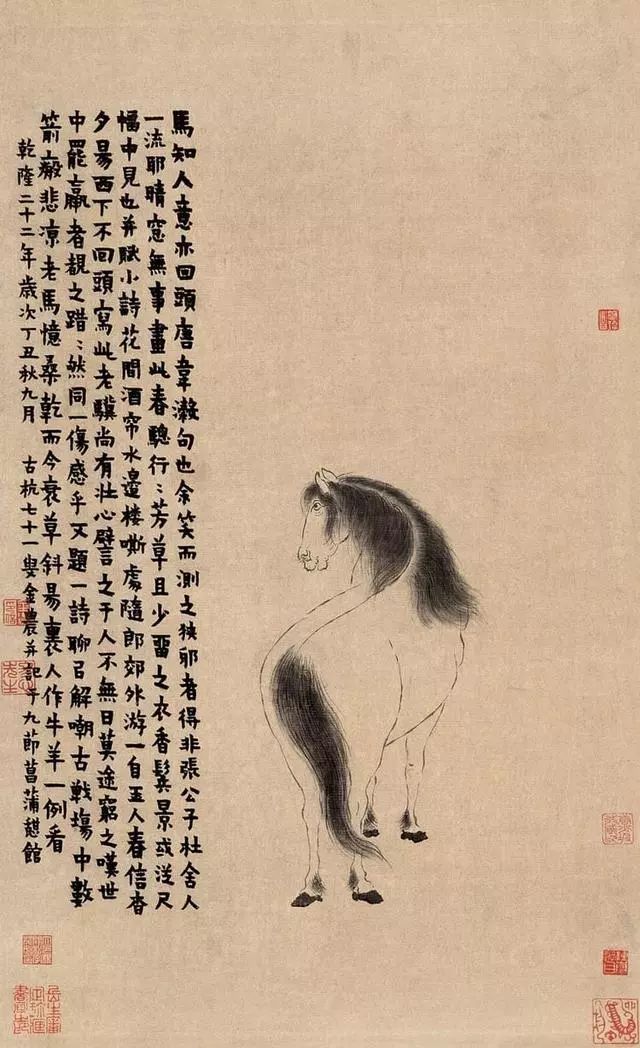 馬知人意亦回頭唐韋瀫句也余笑而測之狹邪者得非張公子杜舍人
一流耶晴窓無事畫此春驄行〻芳草且少畱之衣香鬂景或從尺
幅中見也并賦小詩花間酒帘水邊楼嘶處隨郎郊外游一自玉人春信杳
夕昜西下不回頭寫此老驥尚有壮心譬之于人不無日莫途窮之嘆世
中罷羸者覩之踖〻然同一傷感乎又題一詩聊㠯解嘲古戰塲中數
箭瘢悲凉老馬憶桑乾而今衰草斜昜裏人作牛羊一例看
乾隆二十二年歲次丁丑秋九月 古杭七十一叟金農并記于九節菖蒲憇館